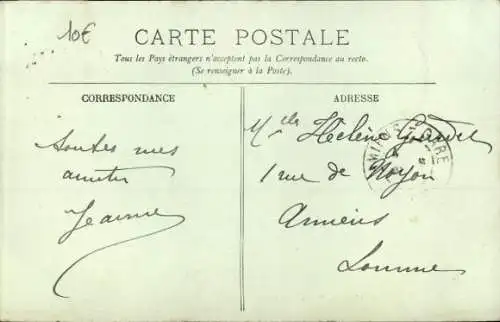 10€
CARTE POSTALE
Tous les Pays étrangers n'acceptent pas la Correspondance au recto.
(Se renseigner à la Poste).
CORRESPONDANCE
ADRESSE
Toutes mes
amitiés
Jeanne
Mlle Hélène
1 rue de Noyon
Amiens
Somme
GARE